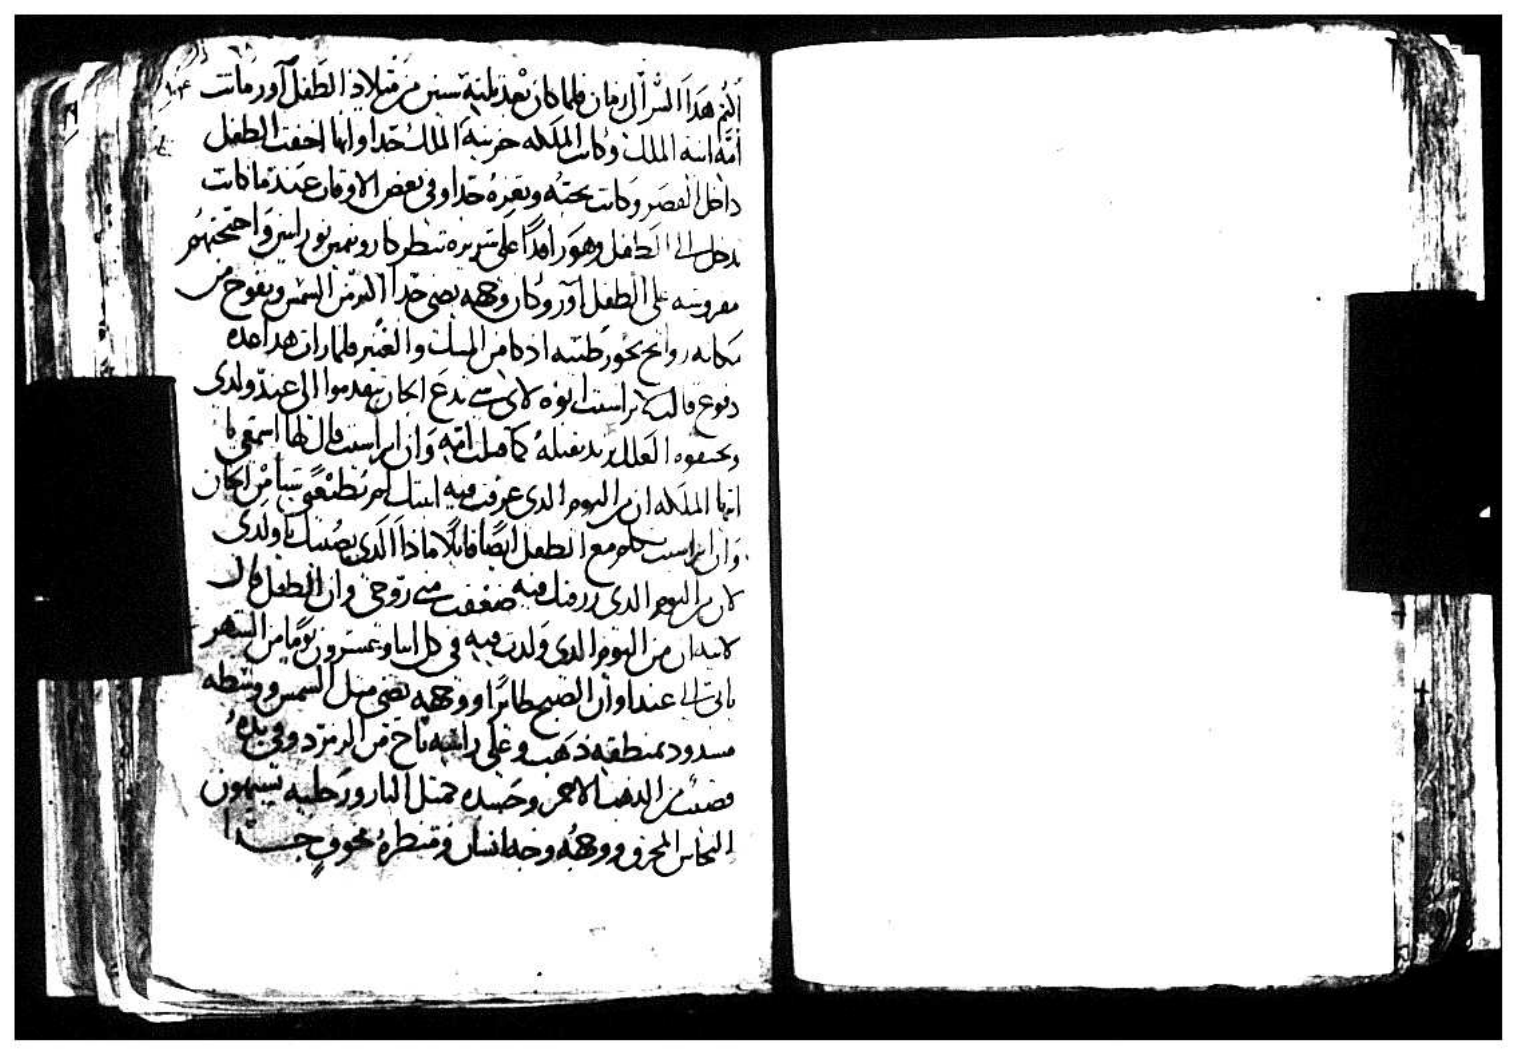 اكتم هذا السر الى زمان فلما كان بعد ثلثة سنين من ميلاد الطفل آور ماتت
امه ابنة الملك وكانت الملكه حزينة الملك جدا وانها اخفت الطفل
داخل القصر وكانت تحبه وتعزه جدا وفي بعض الاوقات عند ما كانت
تدخل الى الطفل وهو راقدًا على سريره تنظر كاروبيمين نورانيين واجنحتهم
مفروشه على الطفل آور وكان وجهه يضي جدا اكثر من الشمس ويفوح من
مكانه روائح بخور طيبه اذكا من المسك والعنبر فلما رات هدا عده
دفوع قالت لابراسيت ابوه لاي شي تدع الجان يتقدموا الى عند ولدي
ويخنقوه العلك تريد تقتله كما قتلت امه وان ابراسيت قال لها اسمعي يا
ايها الملكه ان من اليوم الدي عرفت فيه ابنتك لم تطيعني شيا من الجان
وان ابراسيت تكلم مع الطفل ايضًا قايلًا ماذا الذي يصيبك يا ولدي
لان من اليوم الدي رزقتك فيه ضعفت مني روحي وان الطفل قال
لابيه ان من اليوم الدي ولدت فيه في كل احدا وعشرون يومًا من الشهر
ياتي الى عندا وان الصبح طائرًا ووجهه يضي مثل الشمس ووسطه
مشدود بمنطقه ذهب وعلى راسه تاج من الزمرد وفي يده
قضيب من الدهب الاحمر وجسده كمثل النار ورجليه يشبهون
النحاس المحرق ووجهه وجه انسان ومنظره مخوف جدا